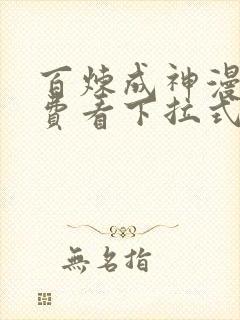 百炼成神漫
费看下拉式
無名指